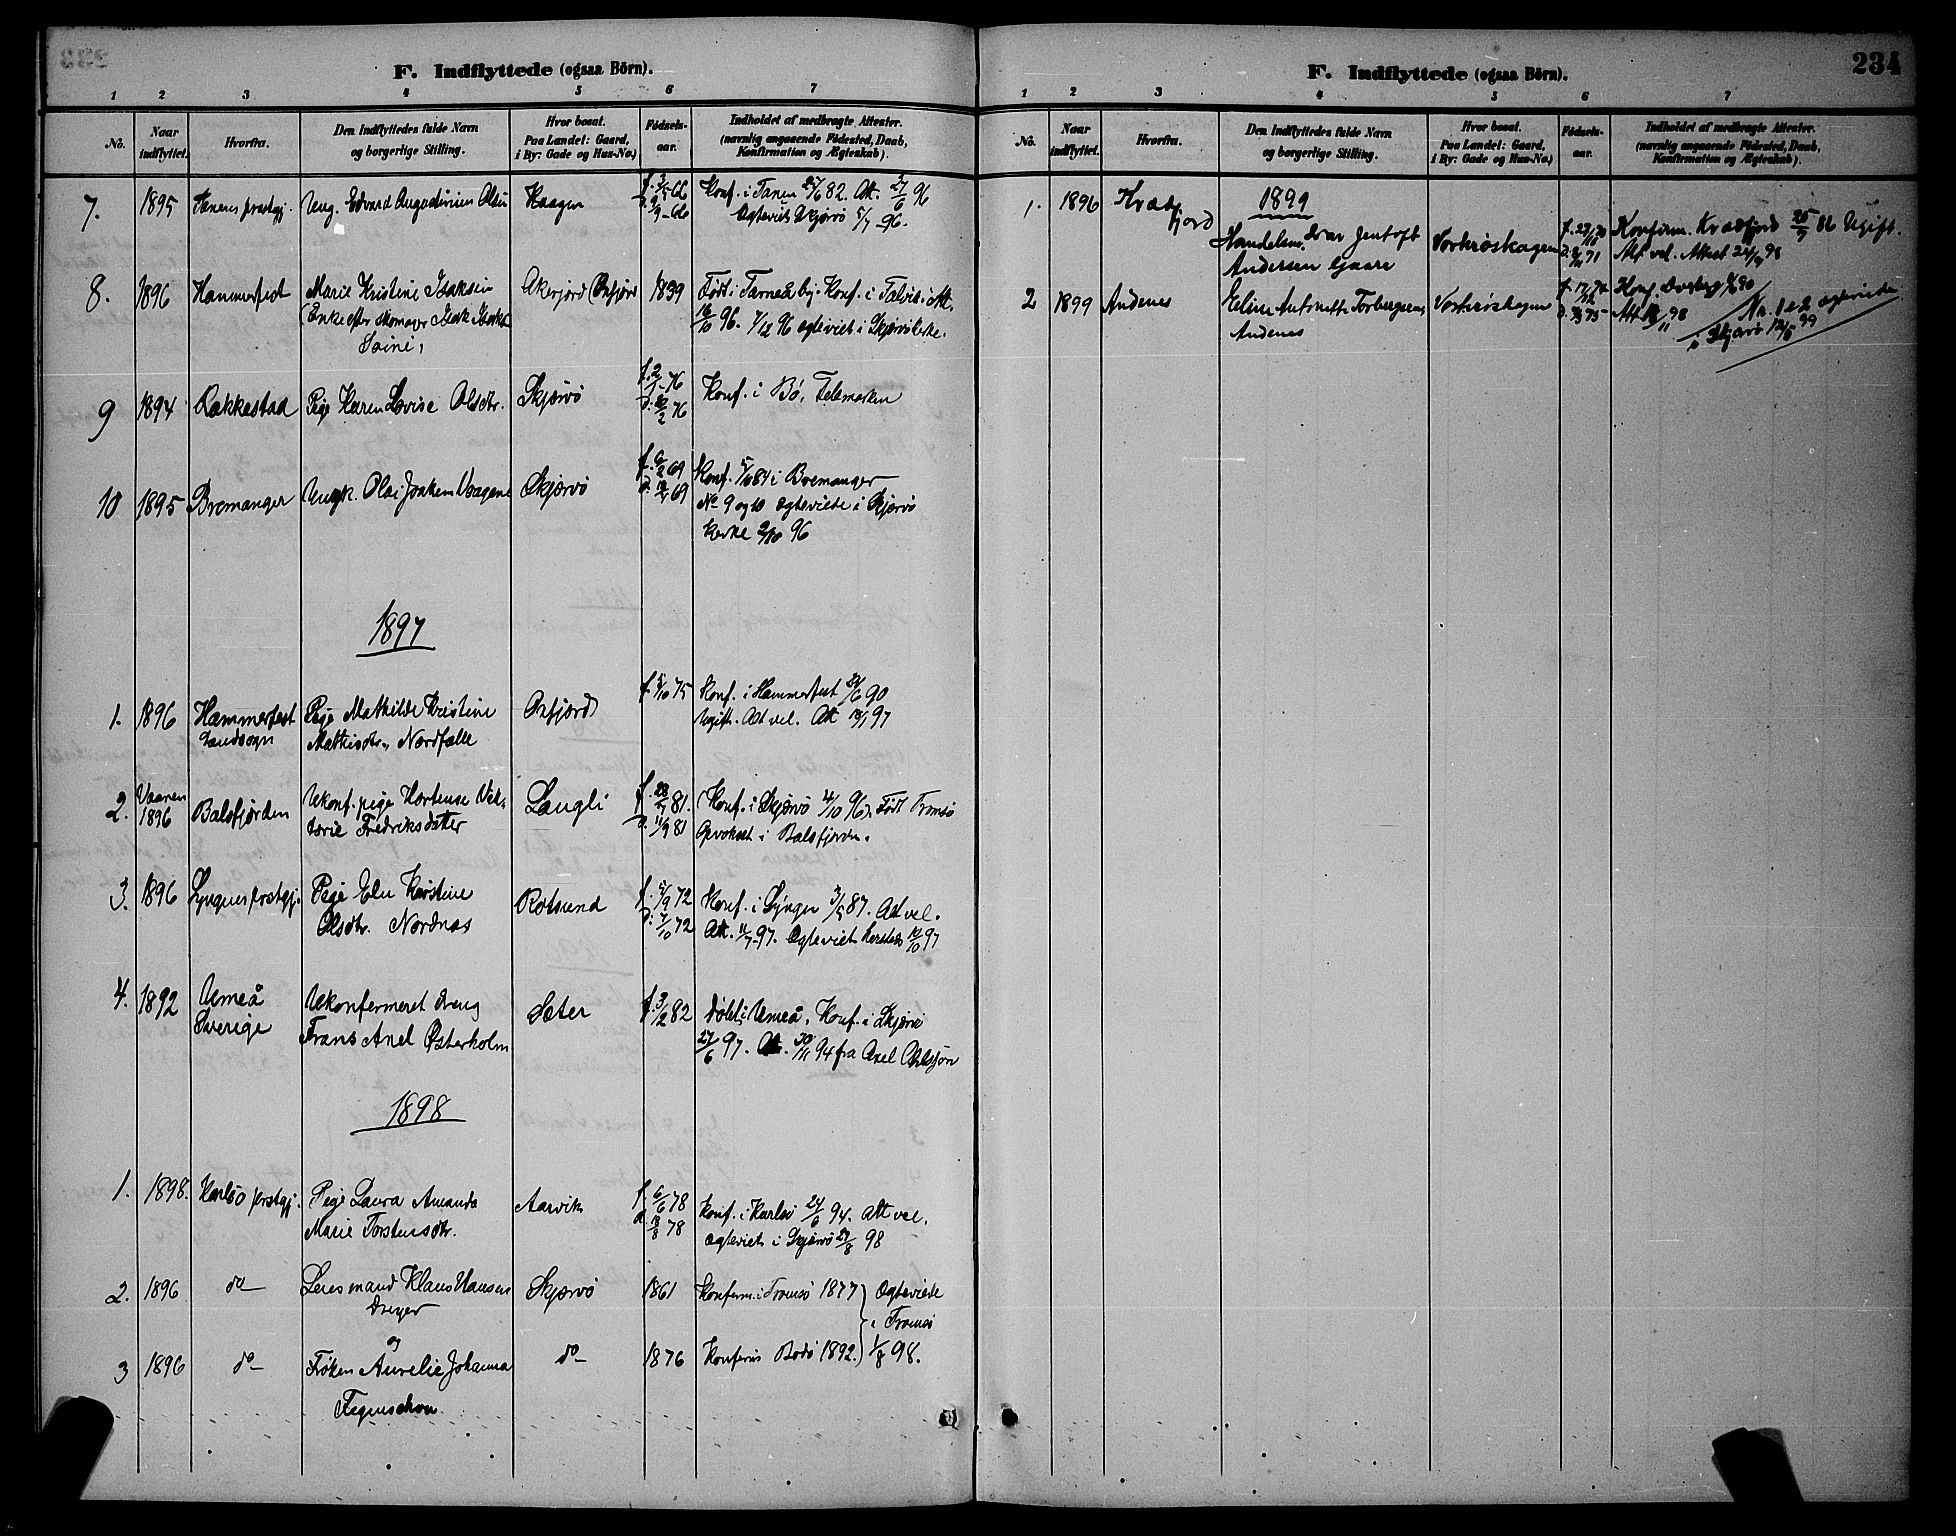 F. Indflyttede (ogsaa Börn).
1 2 3 4 5 6 7
No.
Naar
indflyttet.
Hvorfra.
Den Indflyttedes fulde Navn
og borgerlige Stilling.
Hvor bosat.
Paa Landet: Gaard,
i By: Gade og Hus-No.)
Födsels-
aar.
Indholdet af medbragte Attester.
(navnlig angaaende Födested, Daab,
Konfirmation og Ægteskab).
7. 1895 Tanens prstgj. Ung. Edvard Augustinius Olsen Haagen
Konf. i Tanen 82. Att. 27/6 96
Ægteviet Skjervö 5/7 96.
8. 1896 Hammerfest Marie Kristine Isaksen 1839 Født i Torneå by. Konf. i Talvik. Att.
Enke efter skomager Isak Isaks
16/10 96. 7/12 96 ægteviet i Skjervö kirke.
9 1894 Rakkestad Pige Karen Lovise Olsdtr. Skjærvö f. 2/1 76 Konf. i Bö, Telemarken
d. 76
10 1895 Bremanger Ungk. Olai Joakim Vaagene Skjærvö f. 6/2 69 Konf. 84 i Bremanger
d. 69
No 9 og 10 ægteviede i Skjærvö
kirke 96
1897
1. 1896 Hammerfest
Landsogn
Pige Mathilde Kristine
Mathisdtr., Nordfalle
Oxfjord f. 5/10 75 Konf. i Hammerfest 90
Ugift. Alt vel. Att 97
2. Vaaren
1896
Balsfjorden Ukonf. pige Hortense Vik-
torie Fredriksdatter
Laugli f. 28/7 81.
d. 11/9 81
Konf. i Skjærvö 4/10 96. Født Tromsö
Opvokset i Balsfjorden.
3. 1896 Lyngens prstgj. Pige Elen Kirstine
Olsdtr. Nordnæs
Rotsund f. 5/9 72
d. 7/10 72
Konf. i Lyngen 3/7 87. Alt vel.
Att. 11/7 97. Ægteviet 97
4. 1892 Umeå
Sverige
Ukonfermeret dreng
Frans Axel Østerholm
Sæter f. 3/2 82 Döbt i Umeå. Konf. i Skjærvö
27/6 97. Att. 30/11 94 fra Axel
1898
1. 1898. Karlsö prstgj. Pige Laura Amanda
Marie Torstensdtr.
Aarvik f. 6/6 78
d. 18/8 78
Konf. i Karlsö 24/6 94. Alt vel.
Ægteviet i Skjærvö 27/8 98
2. 1896 do Lensmand Klaus Hansen
Dreyer
Skjærvö 1861 Konferm. i Tromsö 1877 Ægteviede
i Tromsö
og
3 1896 do Frøken Aurelie Johanna do 1876 Konferm Bodö 1892. 1/8 98.
Figenschou
F. Indflyttede (ogsaa Börn).
234
1 2 3 4 5 6 7
No.
Naar
indflyttet.
Hvorfra.
Den Indflyttedes fulde Navn
og borgerlige Stilling.
Hvor bosat.
Paa Landet: Gaard,
i By: Gade og Hus-No.)
Födsels-
aar.
Indholdet af medbragte Attester.
(navnlig angaaende Födested, Daab,
Konfirmation og Ægteskab).
1899
1. 1896 Kvæd
fjord
Handelsm. Ivar Jentoft
Andersen Gaare
Vorterøskagen f. 27/11 70
d. 71
Konferm. Kvædfjord 25/7 86 Ugift.
Alt vel. Attest 98
2 1899 Andenes Eline Antonette Torbergsen
Andenes
Vorterøskagen f. 17/12 74
d. 75
Konf. Dverberg 90
Att 18/11 98
No. 1 & 2 ægteviede
i Skjærvö 99